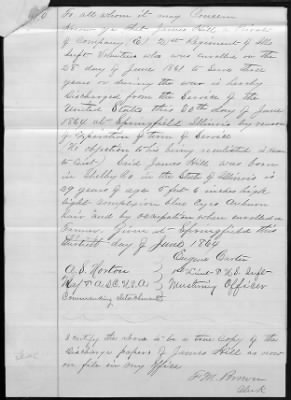 To all whom it may Concern
Know ye that James Hill a Private
of Company, E! 21st Regiment of Ills
Inft Volunteers who was enrolled on the
28 day of June 1861 to serve three
years or during the war is hereby
discharged from the Service of the
United States this 20th day of June
1864 at Springfield Illinois by reason
of Expiration of term of Service
(No objection to his being reenlisted is known
to exist) Said James Hill was born
in Shelby Co in the State of Illinois is
29 years of age 5 feet 6 inches high
light complexion blue Eyes Auburn
hair and by occupation when enrolled a
Farmer. Given at Springfield this
day of June 1864
Eugene
A. S. Norton
1st Lieut U.S. Inft
Mustering Officer
Commanding
I certify the above is to be a true copy of the
discharge papers of James Hill as now
on file in my office
P. M. Brown
Clerk